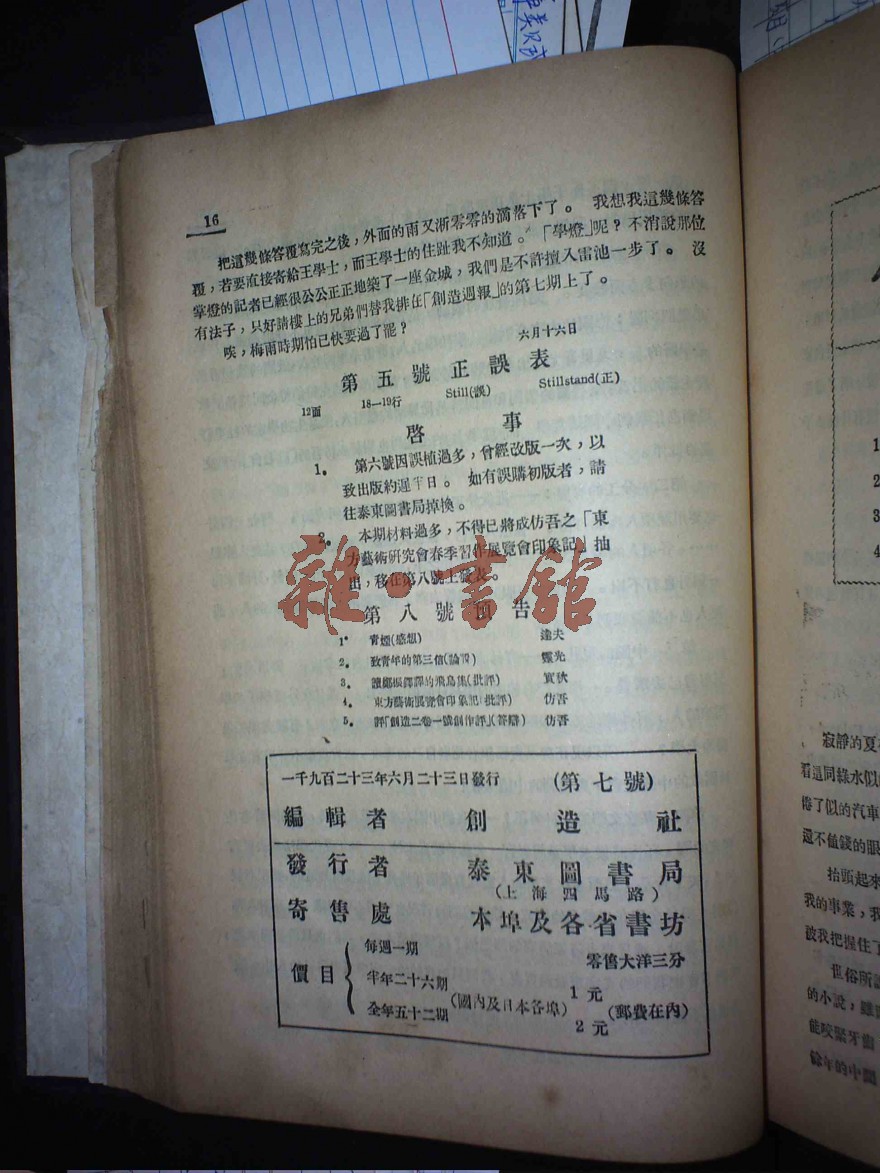 16
把這幾條答覆寫完之後，外面的雨又淅零零的滴落下了。 我想我這幾條答
覆，若要直接寄給王學士，而王學士的住趾我不知道。 「學燈」呢？不消說那位
掌燈的記者已經很公公正正地築了一座金城，我們是不許擅入雷池一步了。 沒
有法子，只好請樓上的兄弟們替我排在「創造週報」的第七期上了。
唉，梅雨時期怕已快要過了罷？
六月十六日
第五號正誤表
12面 18—19行 Still(誤) Stillstand(正)
啓事
1. 第六號因誤植過多，曾經改版一次，以
致出版約遲半日。 如有誤購初版者，請
往泰東圖書局掉換。
2. 本期材料過多，不得已將成仿吾之「東
方藝術研究會春季習作展覽會印象記」抽
出，移在第八號上發表。
雜·書館
第八號預告
1. 青煙(感想) 達夫
2. 致青年的第三信(論習) 靈光
3. 讀鄭振鐸譯的飛鳥集(批評) 實秋
4. 東方藝術展覽會印象記(批評) 仿吾
5. 評「創造二卷一號創作評」(答辯) 仿吾
一千九百二十三年六月二十三日發行 (第七號)
編輯者 創造社
發行者 泰東圖書局
(上海四馬路)
寄售處 本埠及各省書坊
價目
每週一期 零售大洋三分
半年二十六期 1元
(國內及日本各埠) (郵費在內)
全年五十二期 2元
1
2
3
4
寂靜的夏
看這同綠水似
捲了似的汽車
還不值錢的眼
抬頭起來
我的事業，我
被我把握住了
世俗所
的小說，雖
能咬緊牙齒
餘年的中間